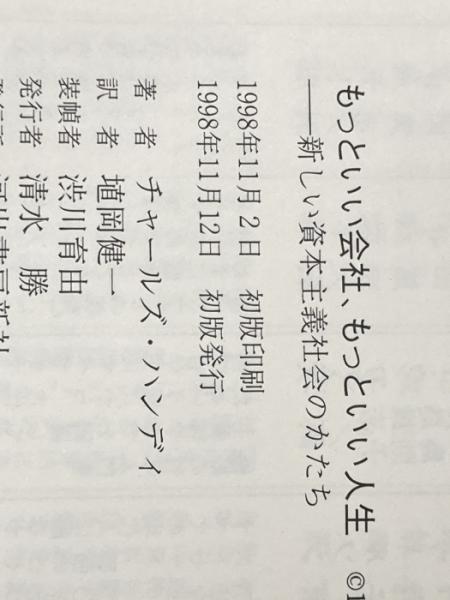 もっといい会社、もっといい人生 ©1
——新しい資本主義社会のかたち
1998年11月2日 初版印刷
1998年11月12日 初版発行
著者 チャールズ・ハンディ
訳者 埴岡健一
装幀者 渋川育由
発行者 清水勝
発行所 河出書房新社